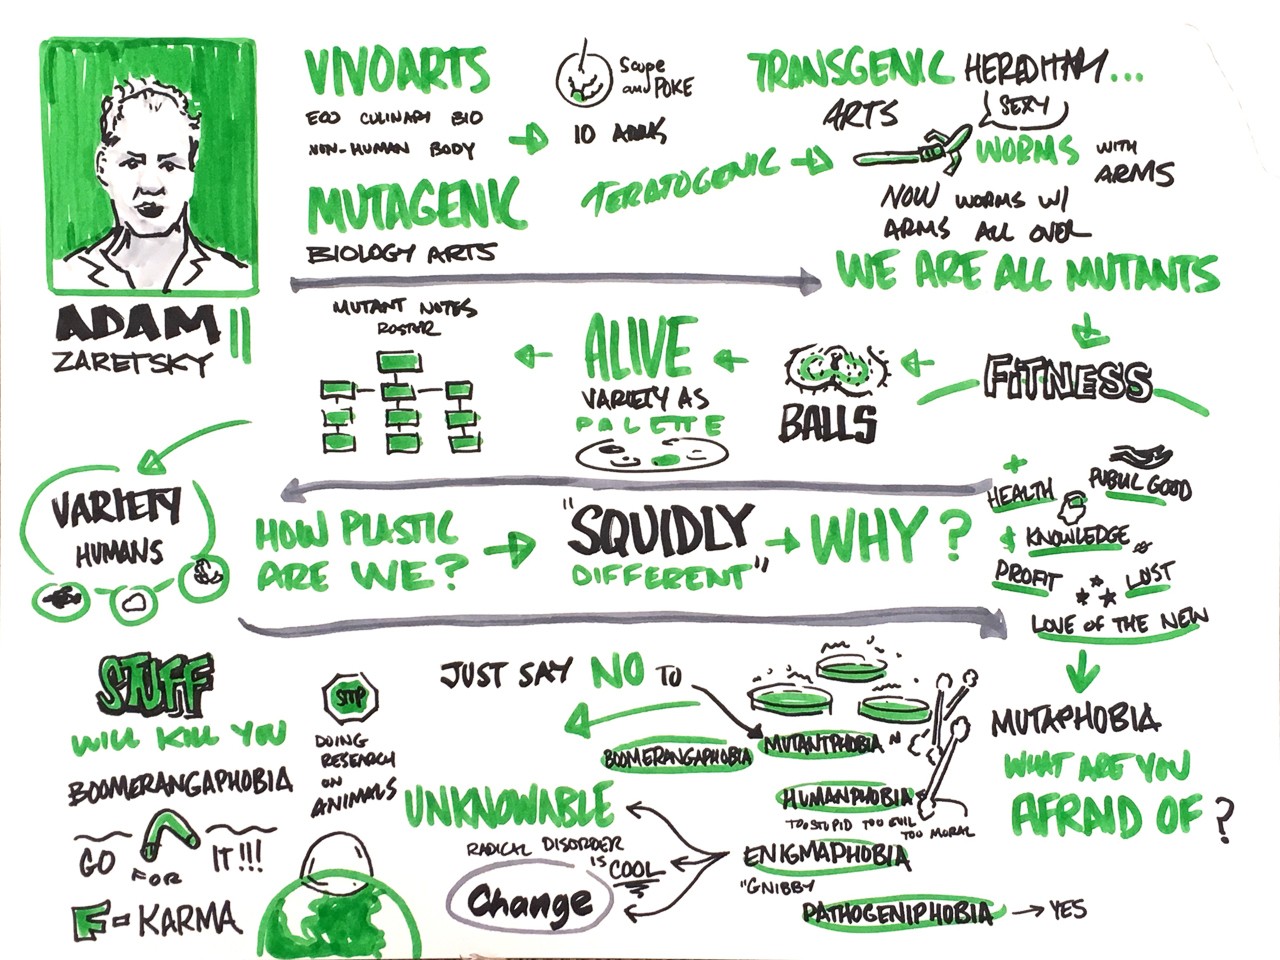 ADAM
ZARETSKY
VIVOARTS
ECO CULINARY BIO
NON-HUMAN BODY
MUTAGENIC
BIOLOGY ARTS
Scope
and POKE
10
TERATOGENIC
TRANSGENIC
ARTS
SEXY
WORMS WITH
ARMS
NOW WORMS W/
ARMS ALL OVER
WE ARE ALL MUTANTS
FiTNESS
BALLS
ALIVE
VARIETY AS
PALETTE
MUTANT NOTES
ROSTER
VARIETY
HUMANS
HOW PLASTIC
ARE WE?
"SQUIDLY
DIFFERENT"
WHY?
+
HEALTH
GOOD
$ KNOWLEDGE
PROFIT
LUST
LOVE OF THE NEW
MUTAPHOBIA
WHAT ARE YOU
AFRAID OF?
JUST SAY NO TO
MUTANTPHOBIA
BOOMERANGAPHOBIA
HUMANPHOBIA
TOO STUPID TOO EVIL
TOO MORAL
ENIGMAPHOBIA
"GNIBBY
PATHOGENIPHOBIA → YES
UNKNOWABLE
RADICAL DISORDER
IS
COOL
Change
STUFF
WILL KILL YOU
BOOMERANGAPHOBIA
GO FOR IT!!!
F-KARMA
STOP
DOING
RESEARCH
ON
ANIMALS